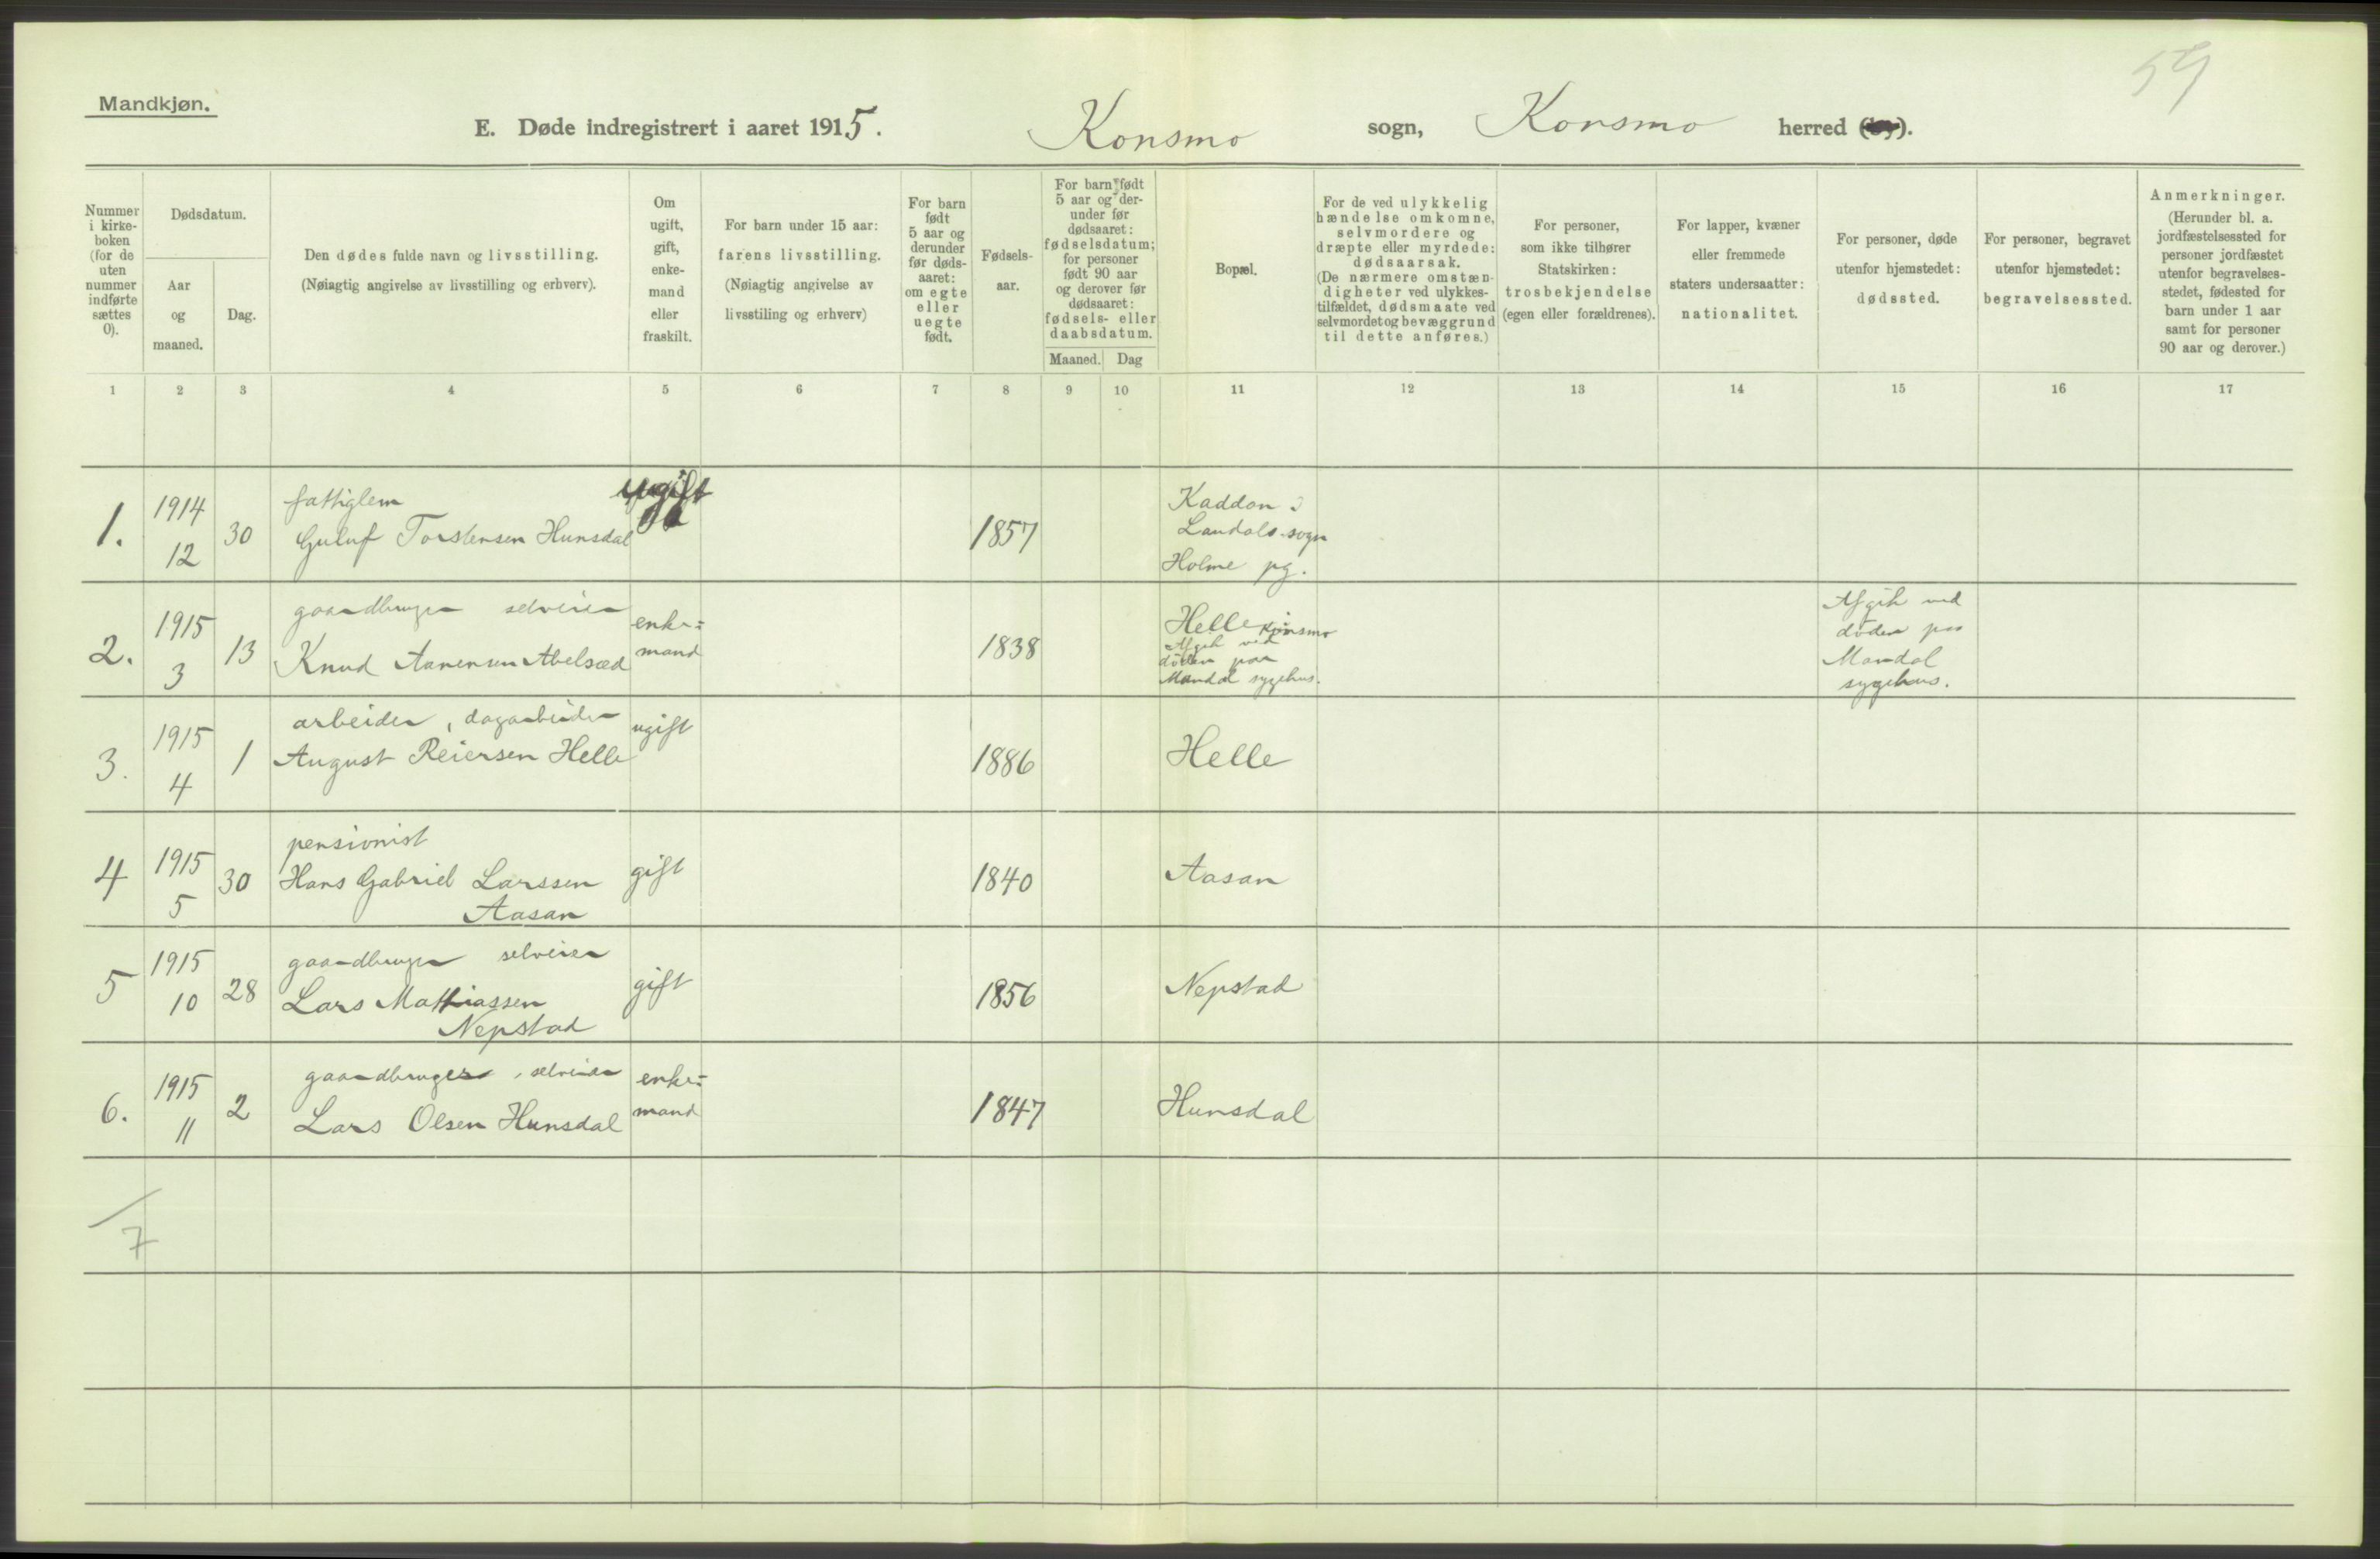 59
Mandkjøn.
E. Døde indregistrert i aaret 1915. Konsmo sogn, Konsmo herred (by).
Nummer
i kirke-
boken
(for de
uten
nummer
indførte
sættes
0).
Dødsdatum.
Aar
og
maaned.
Dag.
Den dødes fulde navn og livsstilling.
(Nøiagtig angivelse av livsstilling og erhverv).
Om
ugift,
gift,
enke-
mand
eller
fraskilt.
For barn under 15 aar:
farens livsstilling.
(Nøiagtig angivelse av
livsstiling og erhverv)
For barn
født
5 aar og
derunder
før døds-
aaret:
om egte
eller
uegte
født.
Fødsels-
aar.
For barn født
5 aar og der-
under før
dødsaaret:
fødselsdatum;
for personer
født 90 aar
og derover før
dødsaaret:
fødsels- eller
daabsdatum.
Maaned. Dag
Bopæl.
For de ved ulykkelig
hændelse omkomne,
selvmordere og
dræpte eller myrdede:
dødsaarsak.
(De nærmere omstæn-
digheter ved ulykkes-
tilfældet, dødsmaate ved
selvmordet og bevæggrund
til dette anføres.)
For personer,
som ikke tilhører
Statskirken:
trosbekjendelse
(egen eller forældrenes).
For lapper, kvæner
eller fremmede
staters undersaatter:
nationalitet.
For personer, døde
utenfor hjemstedet:
dødssted.
For personer, begravet
utenfor hjemstedet:
begravelsessted.
Anmerkninger.
(Herunder bl. a.
jordfæstelsessted for
personer jordfæstet
utenfor begravelses-
stedet, fødested for
barn under 1 aar
samt for personer
90 aar og derover.)
1 2 3 4 5 6 7 8 9 10 11 12 13 14 15 16 17
1.
1914
12
30
fattiglem
Guluf Torstensen Hunsdal
ugift
1857
Kaddon i
Laudals sogn
Holme pg.
2.
1915
3
13
gaardbruger selveier
Knud Aanensen Abelsæd
enke-
mand
1838
Helle Konsmo
Afgik ved
døden paa
Mandal sygehus.
Afgik ved
døden paa
Mandal
sygehus.
3.
1915
4
1
arbeider, dagarbeider
August Reiersen Helle
ugift
1886
Helle
4
1915
5
30
pensionist
Hans Gabriel Larssen
Aasan
gift
1840
Aasan
5
1915
10
28
gaardbruger selveier
Lars Mathiassen
Nepstad
gift
1856
Nepstad
6.
1915
11
2
gaardbruger, selveier
Lars Olsen Hunsdal
enke-
mand
1847
Hunsdal
7